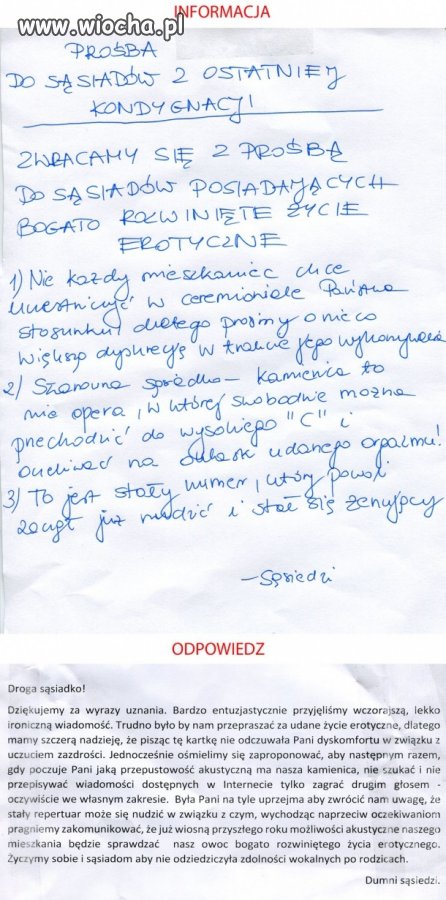 www.wiocha.pl
INFORMACJA
PROŚBA
DO SĄSIADÓW Z OSTATNIEJ
KONDYGNACJI
ZWRACAMY SIĘ Z PROŚBĄ
DO SĄSIADÓW POSIADAJĄCYCH
BOGATO ROZWINIĘTE ŻYCIE
EROTYCZNE
1) Nie każdy mieszkaniec chce
uczestniczyć w ceremoniale Państwa
stosunku dlatego prosimy o nieco
większą dyskrecję w trakcie jego wykonywania
2) Szanowna sąsiadko – kamienica to
nie opera, w której swobodnie można
przechodzić do wysokiego "C" i
oczekiwać na oklaski udanego orgazmu!
3) To jest stały numer, który powoli
zaczął już nudzić i stał się żenujący
– Sąsiedzi
ODPOWIEDZ
Droga sąsiadko!
Dziękujemy za wyrazy uznania. Bardzo entuzjastycznie przyjęliśmy wczorajszą, lekko
ironiczną wiadomość. Trudno było by nam przepraszać za udane życie erotyczne, dlatego
mamy szczerą nadzieję, że pisząc tę kartkę nie odczuwała Pani dyskomfortu w związku z
uczuciem zazdrości. Jednocześnie ośmielimy się zaproponować, aby następnym razem,
gdy poczuje Pani jaką przepustowość akustyczną ma nasza kamienica, nie szukać i nie
przepisywać wiadomości dostępnych w Internecie tylko zagrać drugim głosem -
oczywiście we własnym zakresie. Była Pani na tyle uprzejma aby zwrócić nam uwagę, że
stały repertuar może się nudzić w związku z czym, wychodząc naprzeciw oczekiwaniom
pragniemy zakomunikować, że już wiosną przyszłego roku możliwości akustyczne naszego
mieszkania będzie sprawdzać nasz owoc bogato rozwiniętego życia erotycznego.
Życzymy sobie i sąsiadom aby nie odziedziczyła zdolności wokalnych po rodzicach.
Dumni sąsiedzi.